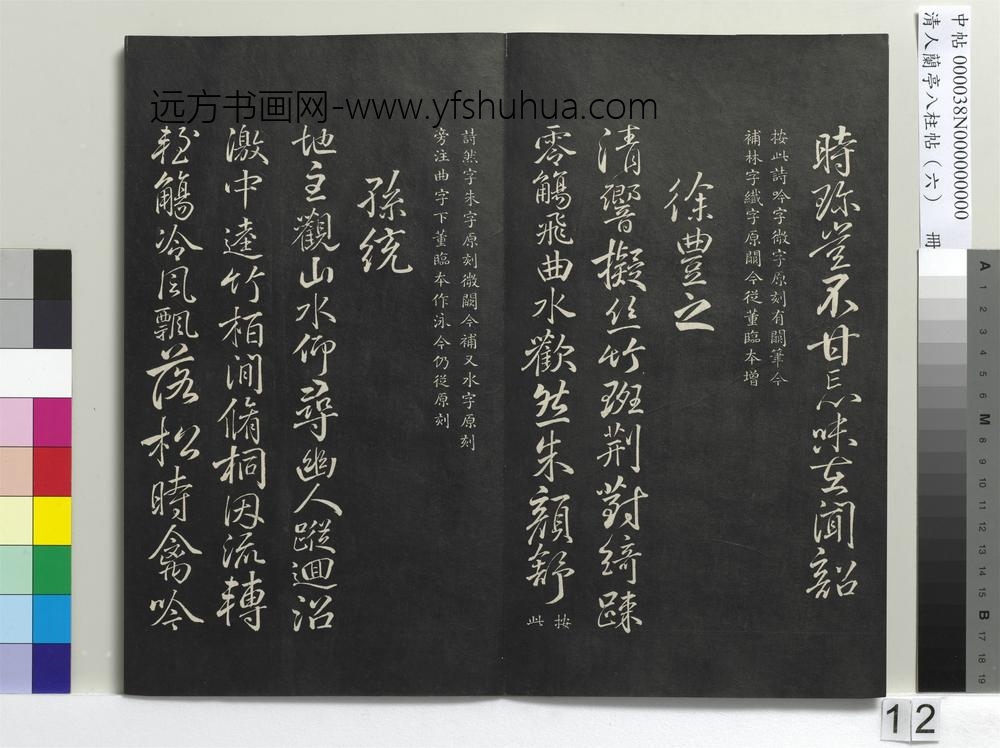 中帖 000038N000000000
清人蘭亭八柱帖（六） 冊
远方书画网-www.yfshuhua.com
時珎豈不甘忘味在聞韶
按此詩吟字微字原刻有闕筆今
補林字纖字原闕今從董臨本增
徐豊之
清響擬絲竹班荆對綺踈
零觴飛曲水歡然朱顏舒
按此
詩然字朱字原刻微闕今補又水字原刻
旁注曲字下董臨本作泳今仍從原刻
孫統
地主觀山水仰尋幽人蹤迴沼
激中逵竹栢澗脩桐因流轉
輕觴冷風飄落松時禽吟
A 1 2 3 4 5 6 M 8 9 10 11 12 13 14 15 B 17 18 19
12